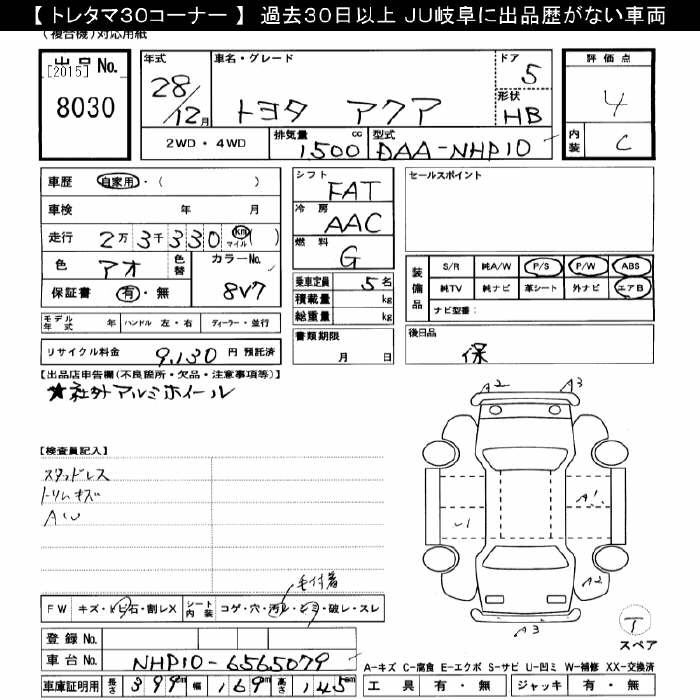 【 トレタマ30コーナー 】 過去30日以上 JU岐阜に出品歴がない車両
(複合機)対応用紙
出品 No.
[2015]
8030
年式
28/12月
車名・グレード
トヨタ アクア
ドア
5
形状
HB
評価点
4
内装
C
2WD・4WD
排気量
1500cc
型式
DAA-NHP10
車歴 自家用・( )
車検 年 月
走行 2万3千330 km マイル
色 アオ
色替
カラーNo.
8V7
保証書 有・無
モデル年式 年 ハンドル 左・右 ディーラー・並行
リサイクル料金 9,130 円 預託済
シフト
FAT
冷房
AAC
燃料
G
乗車定員 5名
積載量 kg
総重量 kg
書類期限
月 日
セールスポイント
装備品
S/R 純A/W P/S P/W ABS
純TV 純ナビ 革シート 外ナビ エアB
ナビ型番:
後日品
保
【出品店申告欄(不良箇所・欠品・注意事項等)】
★社外アルミホイール
【検査員記入】
スタッドレス
トリムキズ
AW
毛付着
FW キズ・トビ石・割レX
シート内装 コゲ・穴・汚レ・シミ・破レ・スレ
登録 No.
車台 No. NHP10-6565079
車庫証明用 長さ 399m 幅 169m 高さ 145m
A2 A3
A1
U1
A2
A3
T
スペア
A-キズ C-腐食 E-エクボ S-サビ U-凹ミ W-補修 XX-交換済
工具 有・無 ジャッキ 有・無